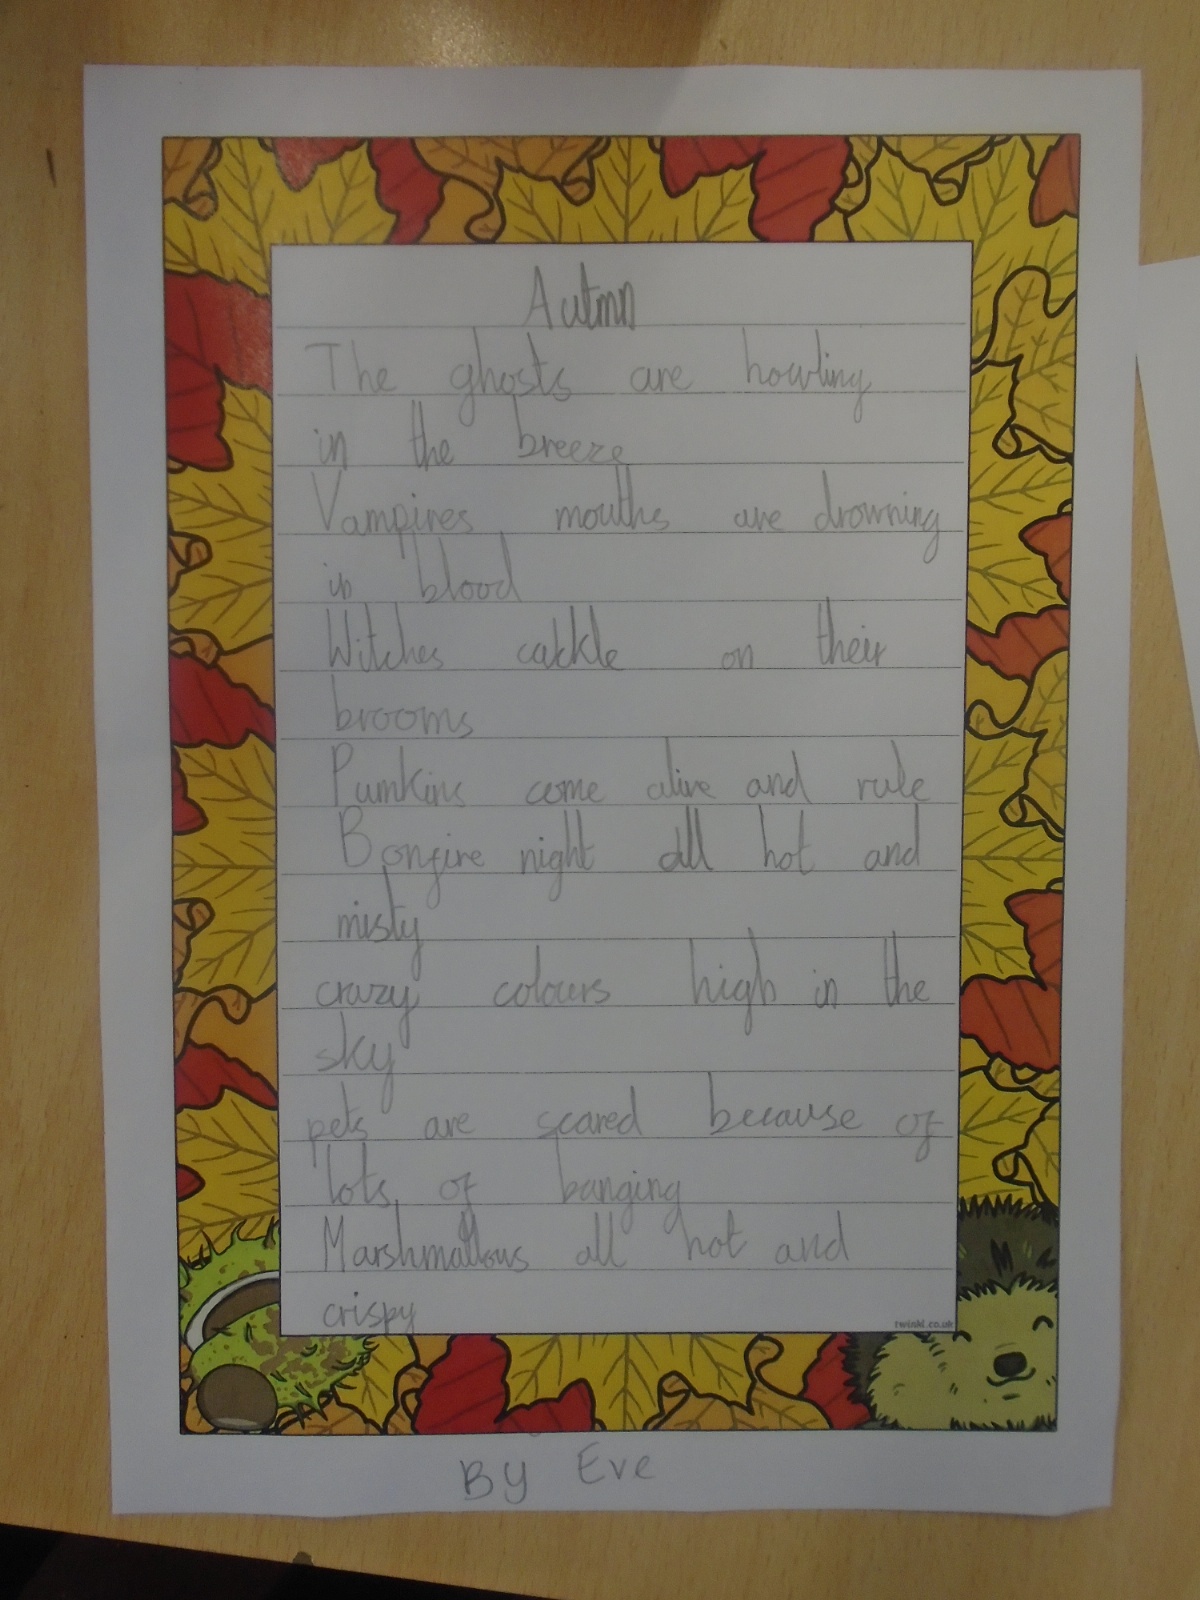 Autmn
The ghosts are howling
in the breeze
Vampires mouths are drowning
in blood
Witches cakkle on their
brooms
Pumkins come alive and rule
Bonfire night all hot and
misty
crazy colours high in the
sky
pets are scared because of
lots of banging
Marshmallows all hot and
crispy
twinkl.co.uk
By Eve